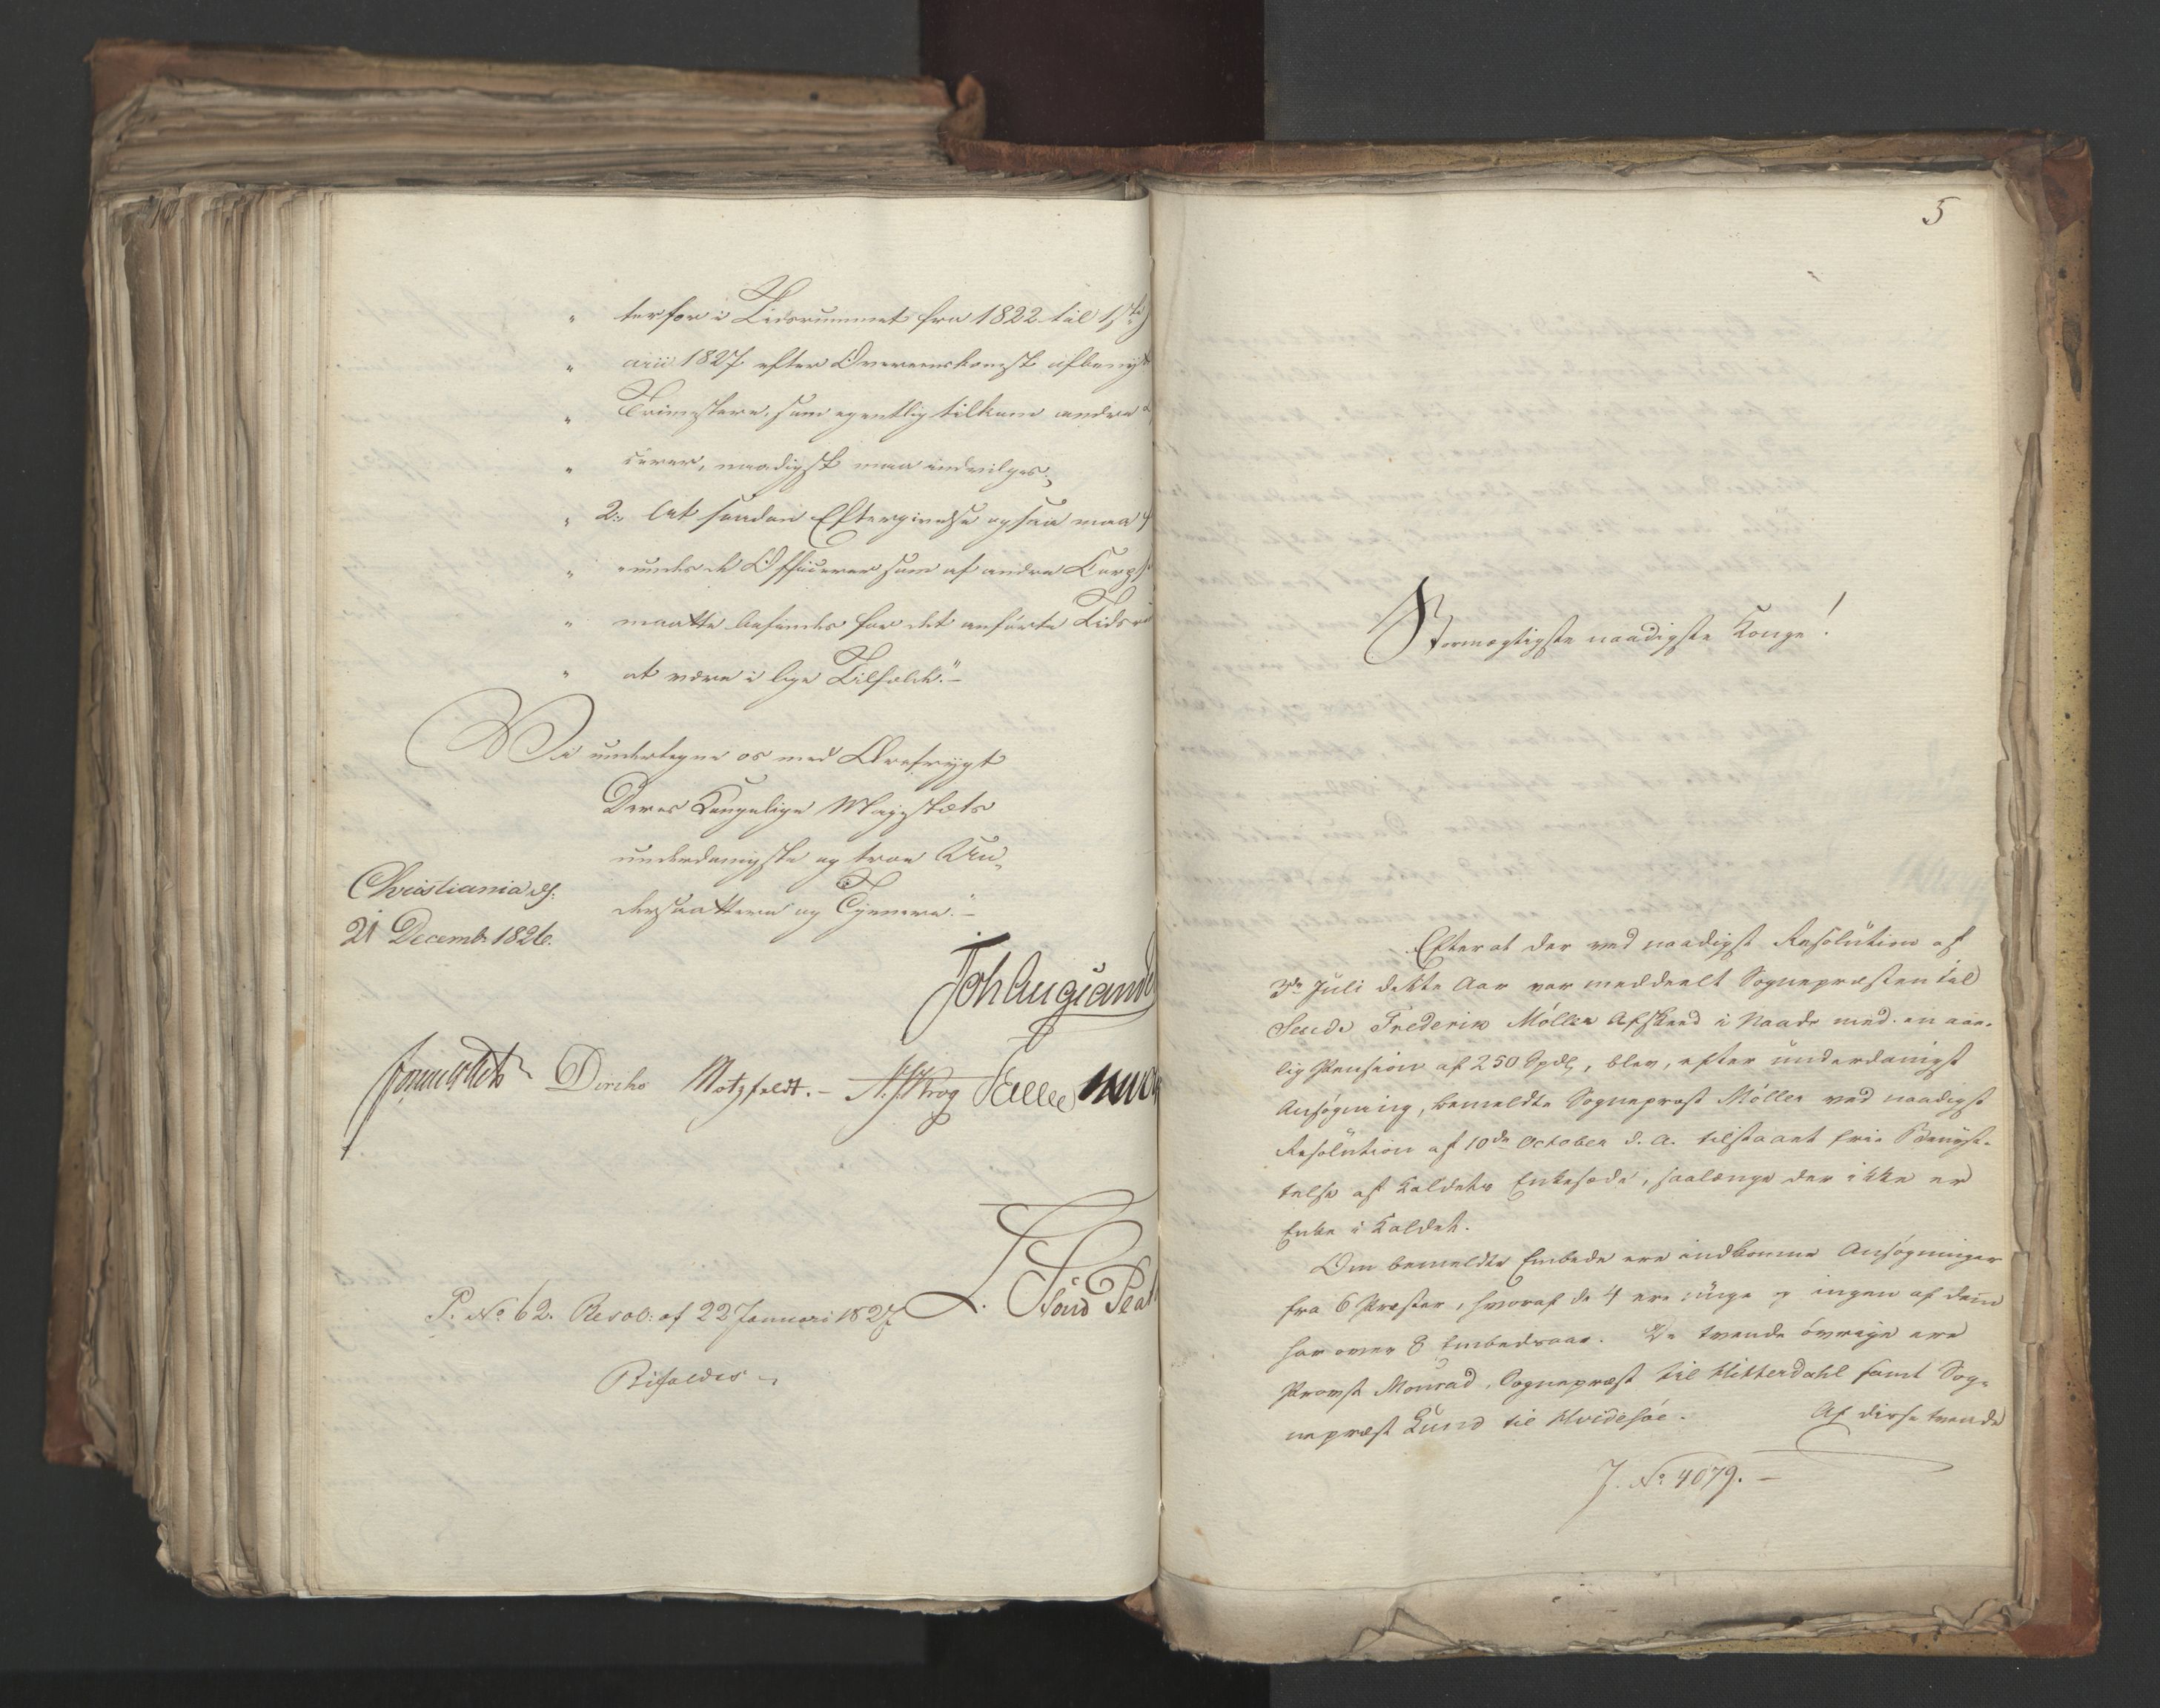 " terfor i Tidsrummet fra 1822 til 1ste J
" arii 1827 efter Overeenskomst afbeny
" Trimestere, som egentlig tilkom andre
" cerer, naadigst maa indvilges;
" 2: At saadan Eftergivelse ogsaa maa
" undes de Officerer som af andre Corps
" maatte befindes for det anførte Tidsr
" at være i lige Tilfælde."-
Vi undertegne os med Ærefrygt
Deres Kongelige Majestæts
underdanigste og troe Un-
dersaattere og Tjenere.-
Christiania d.
21 Decemb. 1826.
Joh Aug Sand
Diriks Motzfeldt.- N. J. Krog
P. No 62. Resol: af 22 Januari 1827
Bifaldes
5
Stormægtigste naadigste Konge!
Efterat der ved naadigst Resolution af
3de Juli dette Aar var meddeelt Sognepræsten til
Frederik Møller Afskeed i Naade med en aar-
lig Pension af 250 Spdl, blev, efter underdanigst
Ansøgning, bemeldte Sognepræst Møller ved naadigst
Resolution af 10de October d. A. tilstaaet frie Benyt-
telse af Kaldets Enkesæde, saalænge der ikke er
Enke i Kaldet.
Om bemeldte Embede ere indkomne Ansøgninger
fra 6 Præster, hvoraf de 4 ere unge og ingen af dem
har over 8 Embedsaar. De tvende øvrige ere
Provst Monrad, Sognepræst til Hitterdahl samt Sog-
nepræst Lund til Hvidesøe. Af disse tvende
J. No 4079.-